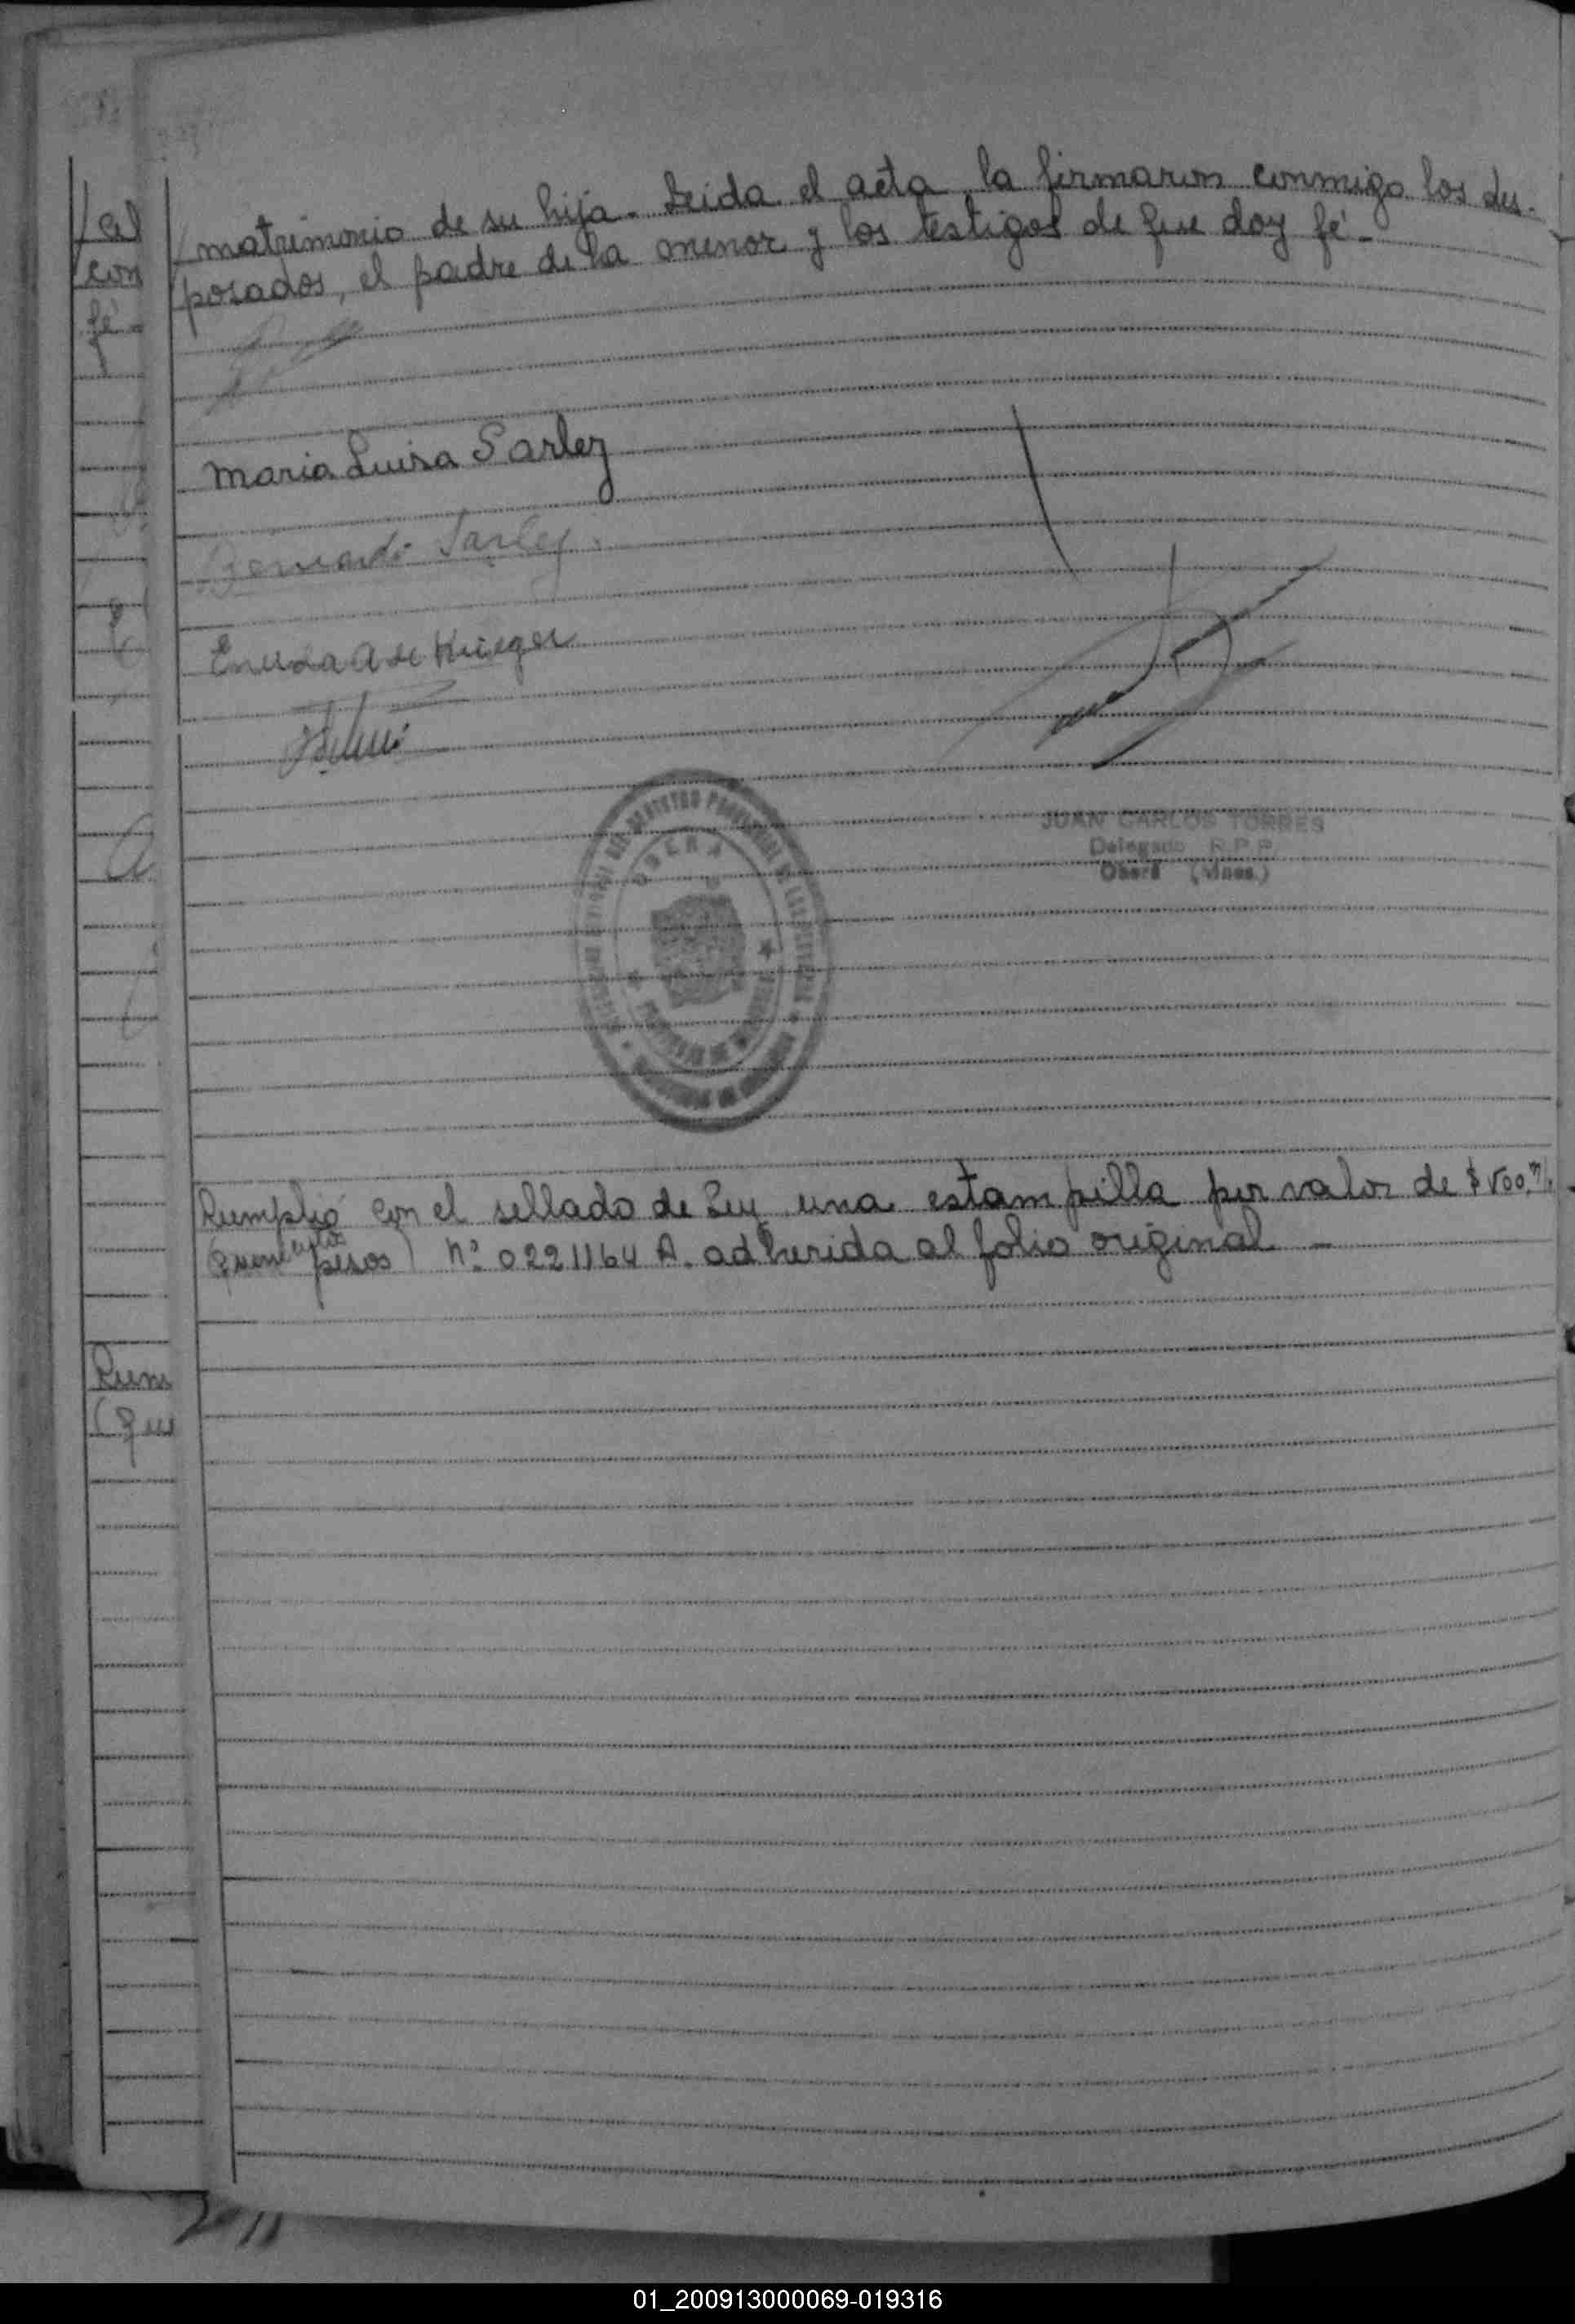 matrimonio de su hija. Leida el acta la firmaron conmigo los des-
posados, el padre de la menor y los testigos de que doy fé-
Maria Luisa Sarley
Bernardo Sarley
A de Krieger
JUAN CARLOS TORRES
Delegado R.P.P.
Oberá (Mnes.)
OBERA
Cumplió con el sellado de Ley una estampilla por valor de $500 m/
(quinientos pesos) Nº 0221164 A. adherida al folio original -
al
con
fé -
Cum
(qui
01_200913000069-019316